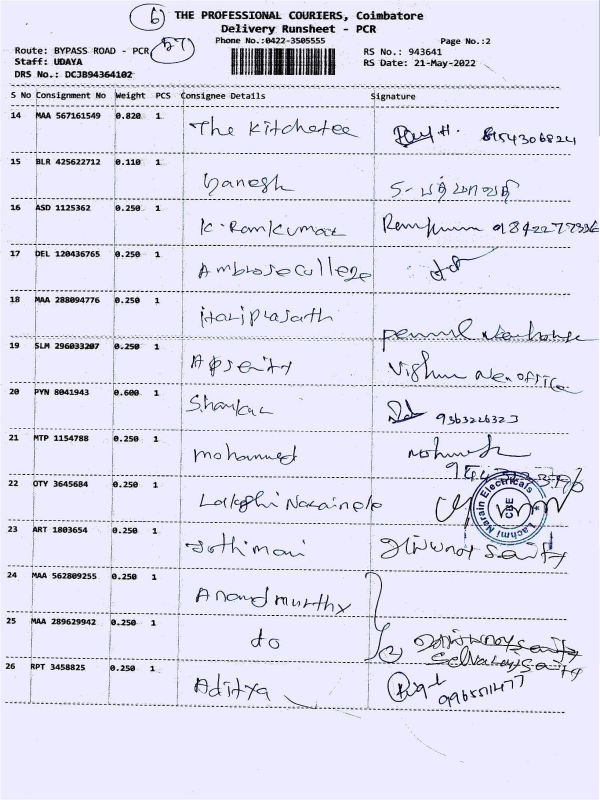 6
57
THE PROFESSIONAL COURIERS, Coimbatore
Delivery Runsheet - PCR
Phone No.:0422-3505555
Page No.:2
Route: BYPASS ROAD - PCR
RS No.: 943641
Staff: UDAYA
RS Date: 21-May-2022
DRS No.: DCJB94364102
S No Consignment No Weight PCS Consignee Details Signature
14 MAA 567161549 0.820 1 The Kitchetee 8154306824
15 BLR 425622712 0.110 1 Ganesh S-
16 ASD 1125362 0.250 1 K. Ramkumar Ramkumar
17 DEL 120436765 0.250 1 Ambrose College
18 MAA 288094776 0.250 1 Hariprasath
19 SLM 296033207 0.250 1 Vishnu New office
20 PYN 8041943 0.600 1 Shankar 936322632
21 MTP 1154788 0.250 1 mohammed
22 OTY 3645684 0.250 1
Lachmi Narain Electricals
CBE
23 ART 1803654 0.250 1 Jothimani
24 MAA 562809255 0.250 1 Anandmurthy
25 MAA 289629942 0.250 1 do
26 RPT 3458825 0.250 1 Aditya